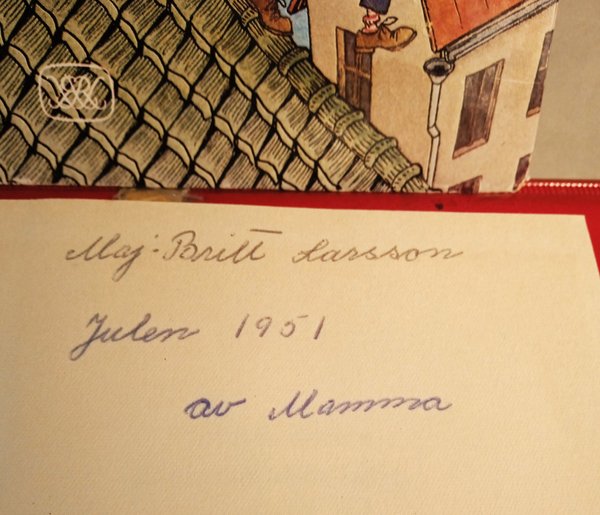 Maj-Britt Larsson
Julen 1951
av Mamma